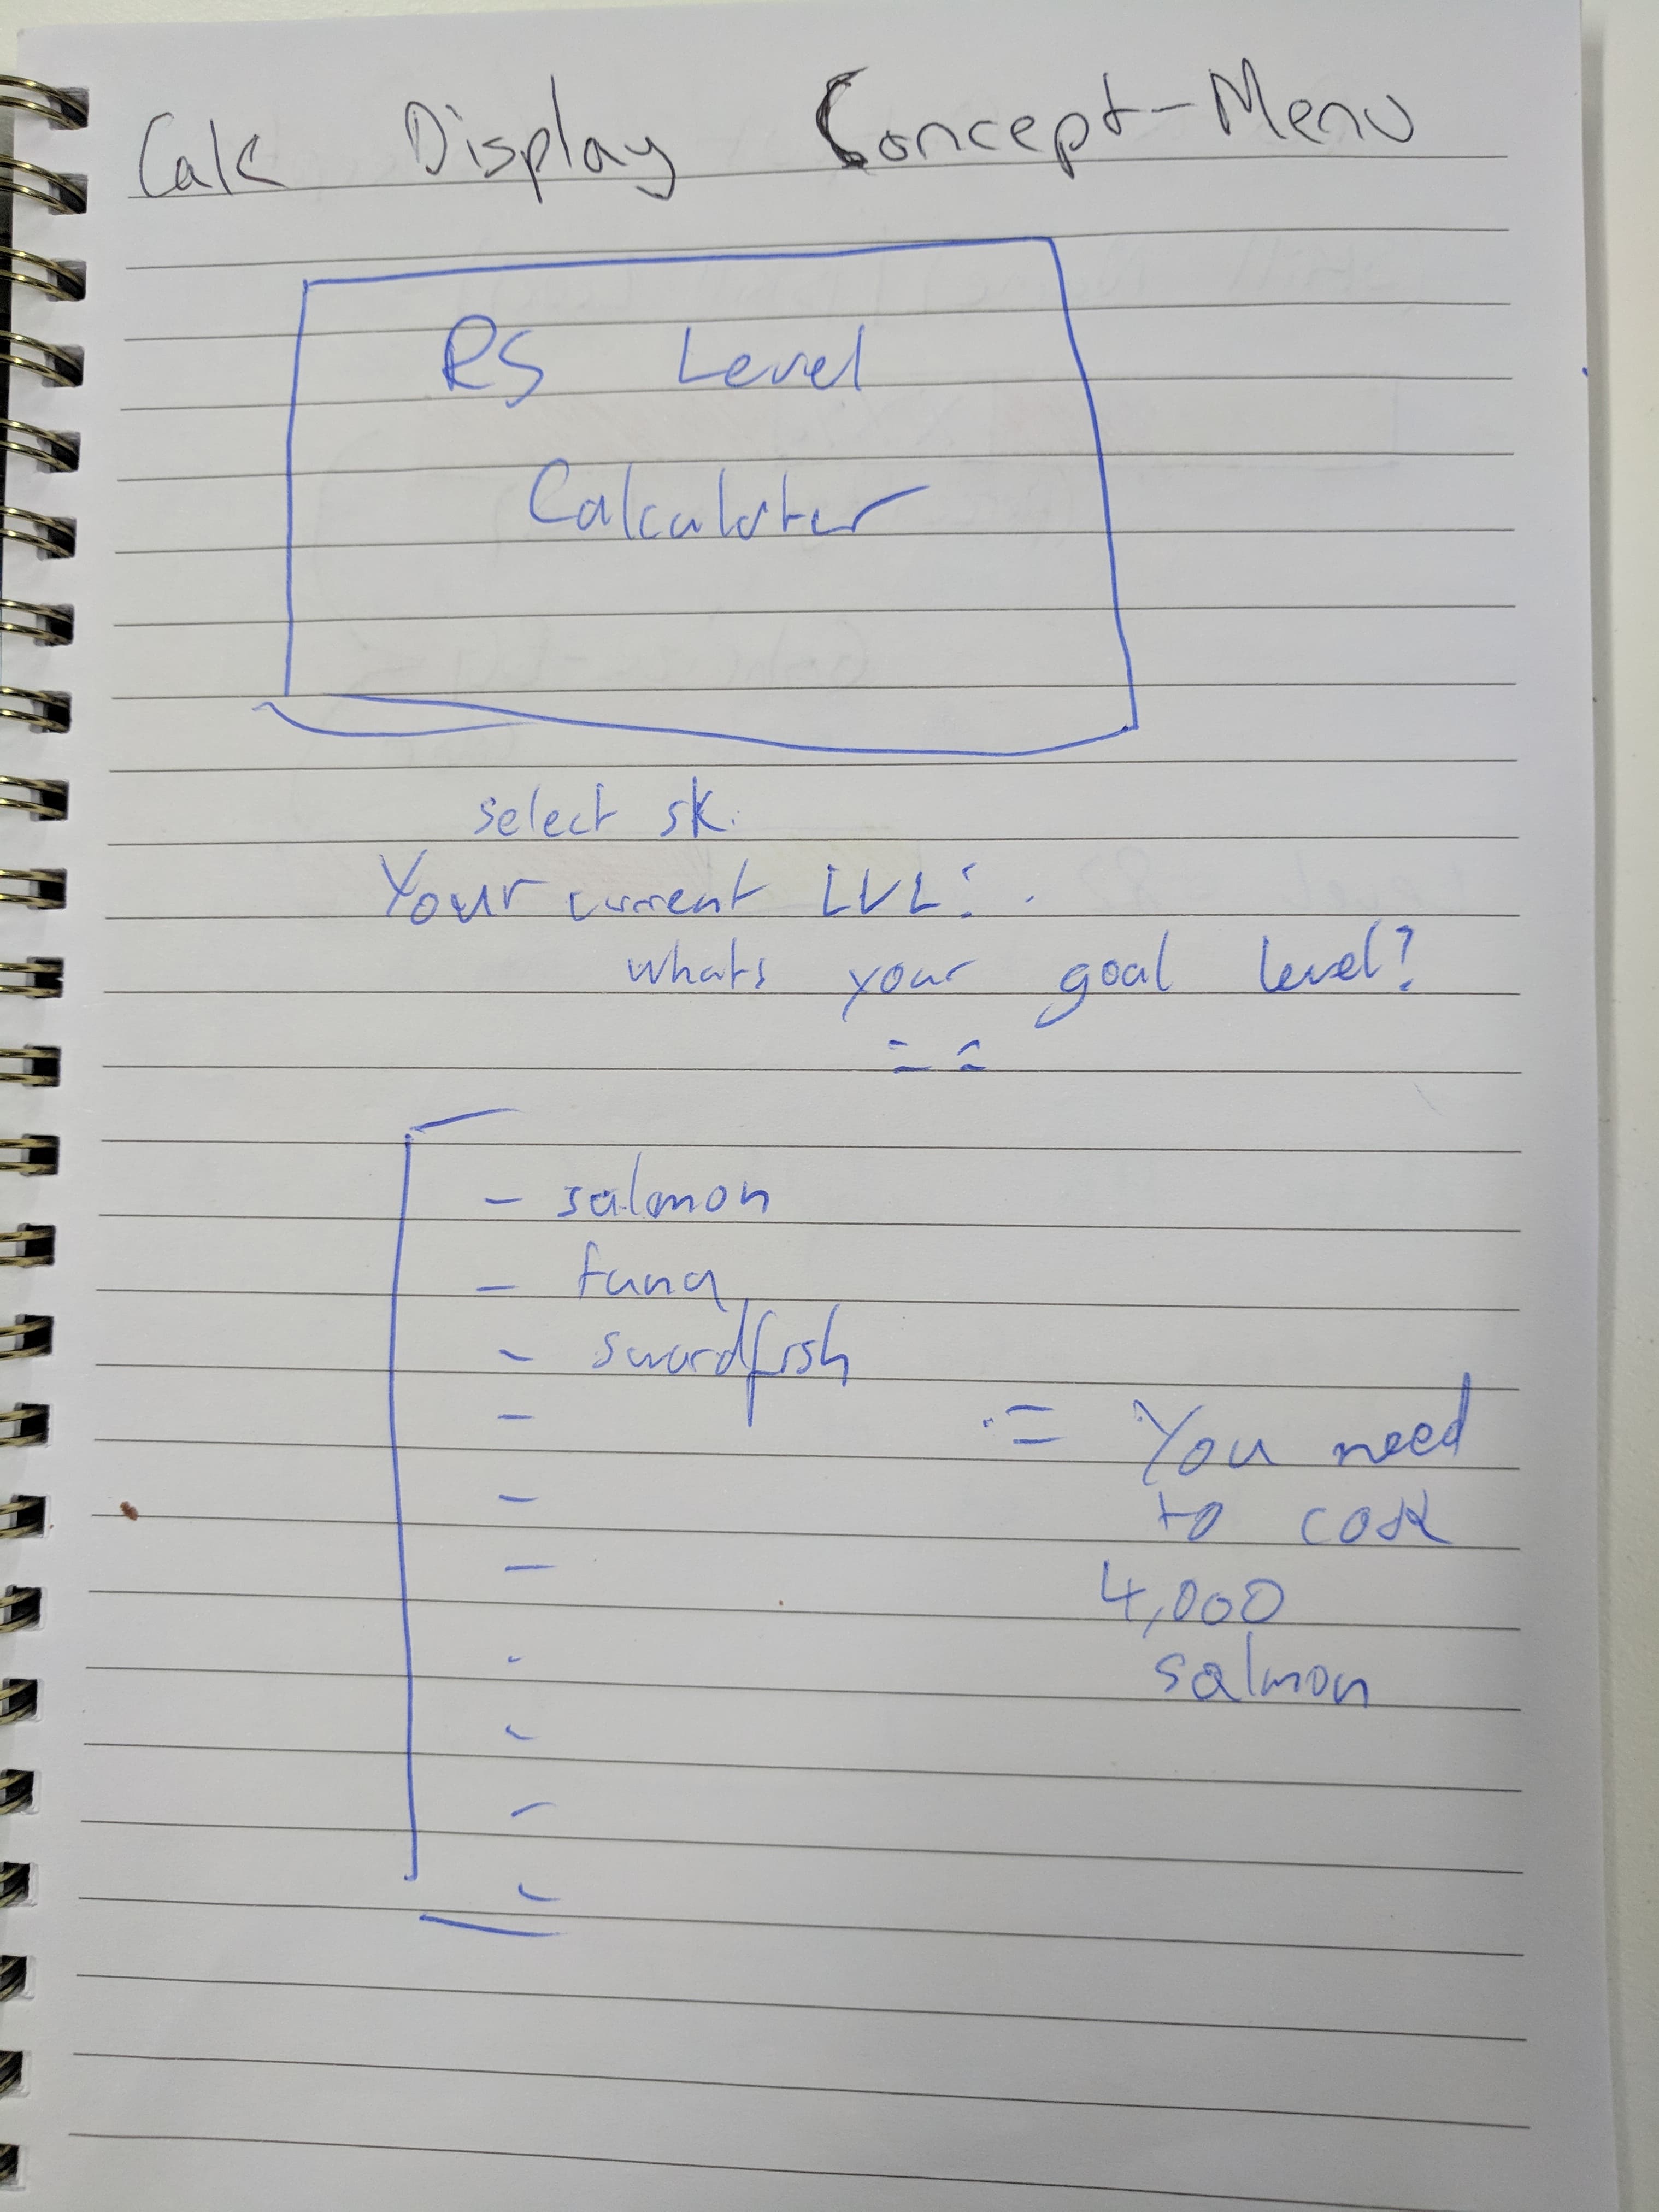 Calc Display Concept-Menu
RS Level
Calculater
select sk.
Your current LVL:.
whats your goal level?
= =
- salmon
- tuna
- swordfish
-
-
-
-
-
-
-
.= You need
to cook
4,000
salmon